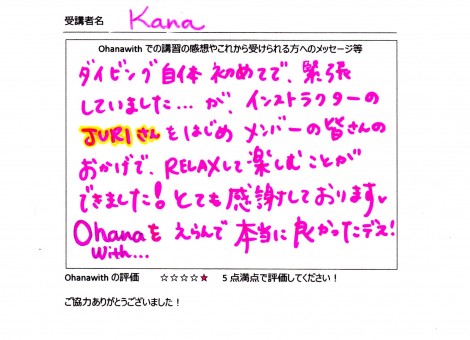 受講者名 Kana
Ohanawith での講習の感想やこれから受けられる方へのメッセージ等
ダイビング自体 初めてで、緊張
していました…が、インストラクターの
JURIさんをはじめ メンバーの皆さんの
おかげで、RELAXして楽しむことが
できました!とても感謝しております
Ohanaを えらんで 本当に良かったデス!
with…
Ohanawith の評価 ☆☆☆☆★ 5 点満点で評価してください!
ご協力ありがとうございました!